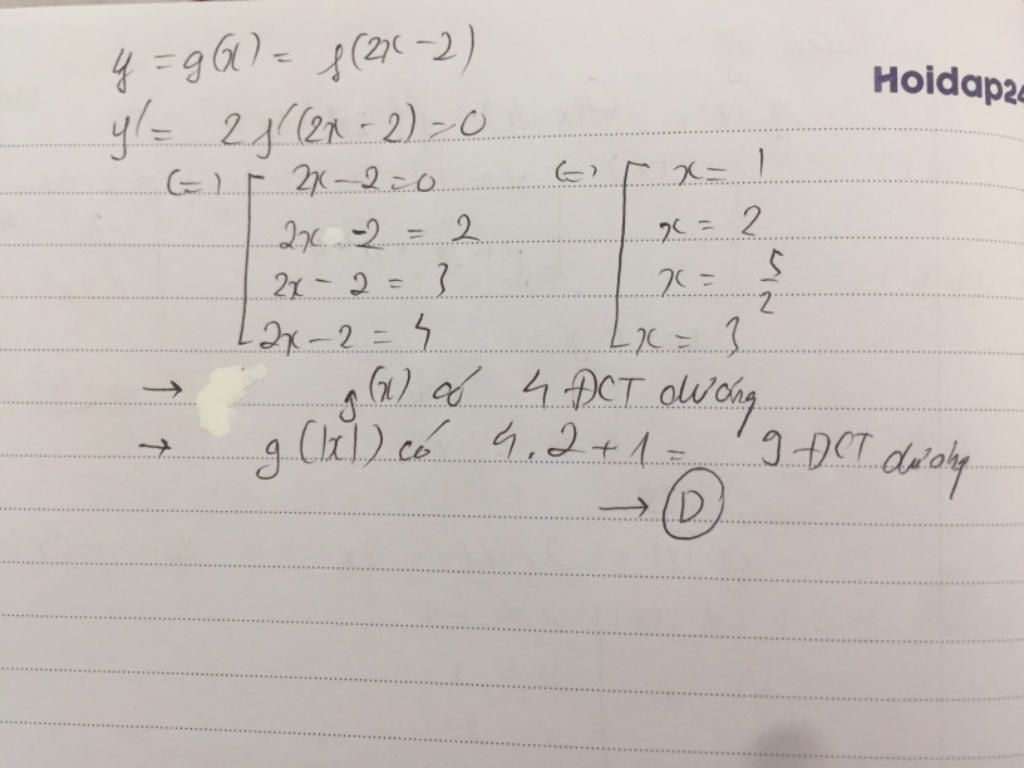 y = g(x) = f(2x - 2)
Hoidap24
y' = 2f'(2x - 2) = 0
(=) [ 2x - 2 = 0 (=) [ x = 1
2x - 2 = 2 x = 2
2x - 2 = 3 x = 5/2
2x - 2 = 4 x = 3
→ g(x) có 4 ĐCT dương
→ g(|x|) có 4.2 + 1 = 9 ĐCT dương
→ D